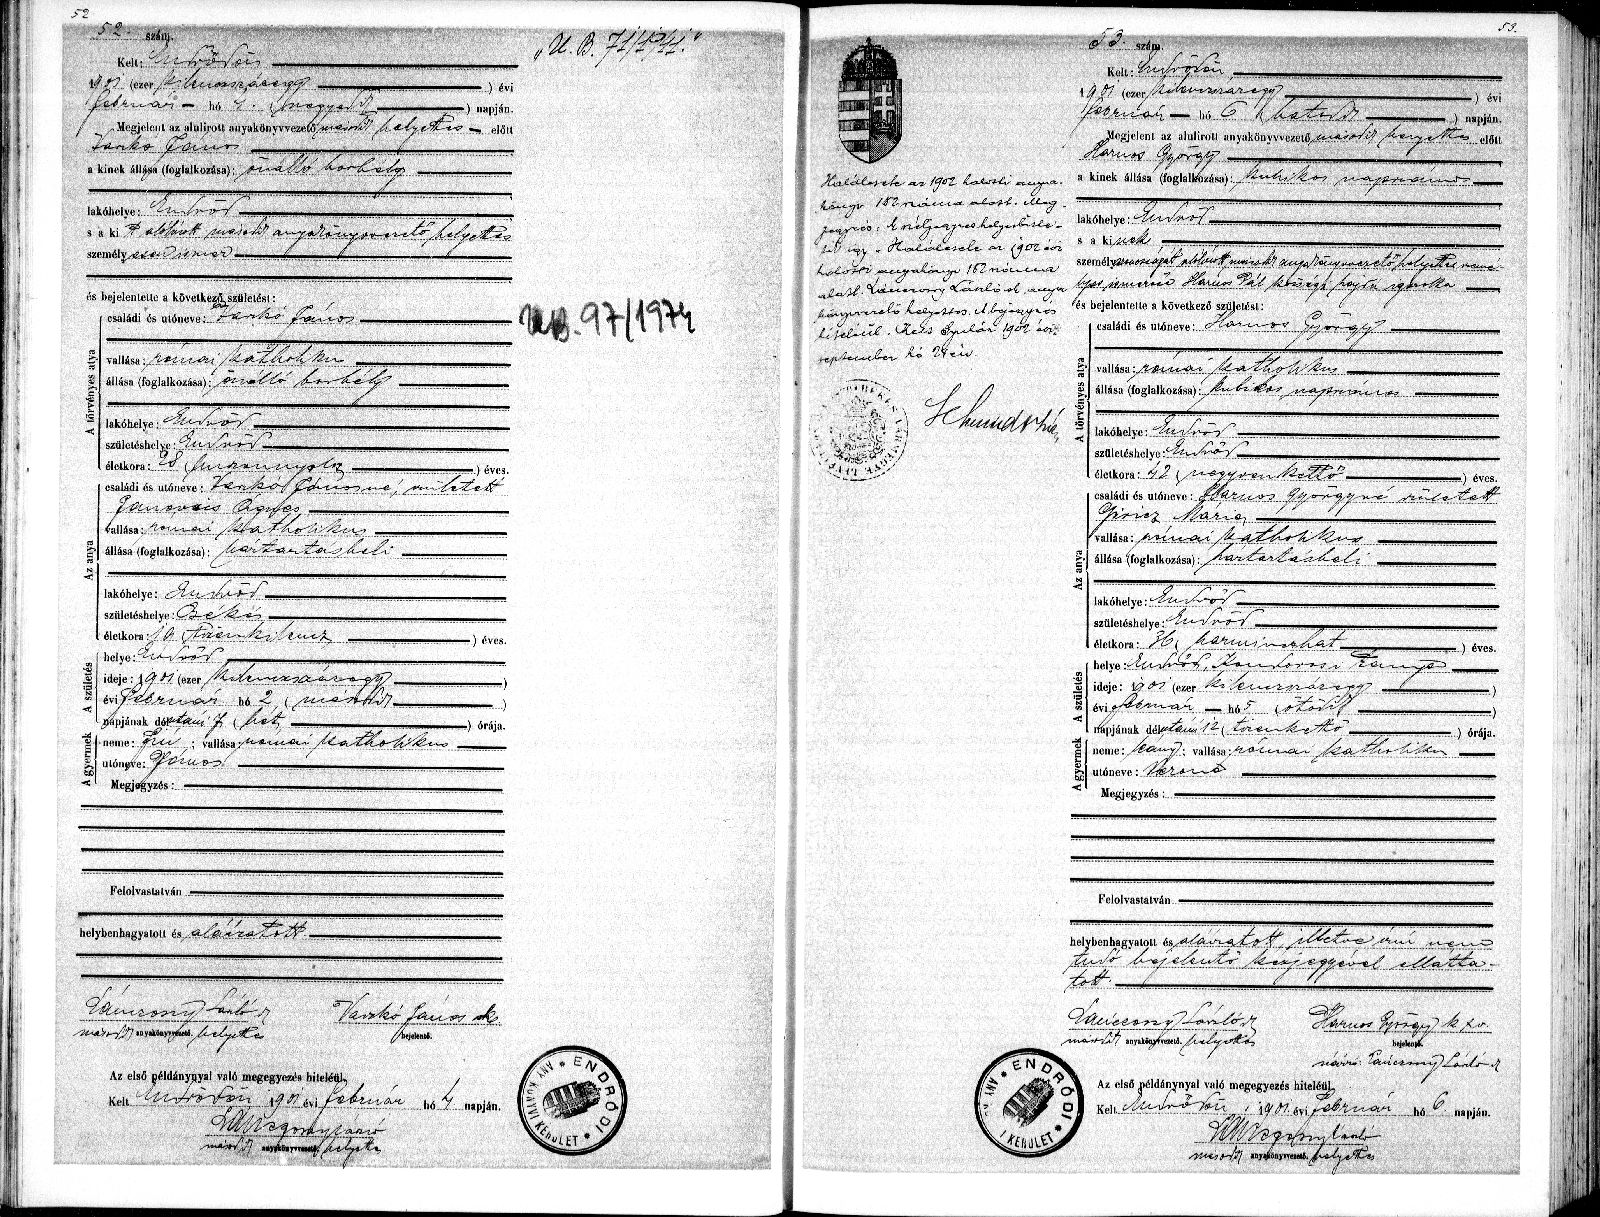 52
52. szám.
"U. B. 71/1941."
Kelt: Endrődön
1901 (ezer kilenczszázegy) évi
február hó 4. (negyedik) napján.
Megjelent az alulirott anyakönyvvezető másod helyettes előtt
Varkó János
a kinek állása (foglalkozása): önálló borbély
lakóhelye: Endrőd
s a ki alólirott másod anyakönyvvezető helyettes
személyesen ismer
és bejelentette a következő születést:
A törvényes atya
családi és utóneve: Varkó János
vallása: római katholikus
állása (foglalkozása): önálló borbély
lakóhelye: Endrőd
születéshelye: Endrőd
életkora: ) éves.
Az anya
családi és utóneve: Varkó Jánosné, született
Ágnes
vallása: római katholikus
állása (foglalkozása): háztartásbeli
lakóhelye: Endrőd
születéshelye: Békés
életkora: 19 (tizenkilencz) éves.
A születés
helye: Endrőd
ideje: 1901 (ezer kilenczszázegy)
évi február hó 2 (második)
napjának délutáni 7 (hét) órája.
A gyermek
neme: fiú; vallása: római katholikus
utóneve: János
Megjegyzés:
U.B. 97/1974
Felolvastatván
helybenhagyatott és aláiratott.
Lánczony László
másod anyakönyvvezető. helyettes
Varkó János sk
bejelentő.
Az első példánynyal való megegyezés hiteléül,
Kelt Endrődön 1901 évi február hó 4 napján.
másod anyakönyvvezető. helyettes
ENDRŐDI ANYAKÖNYVI KERÜLET
53.
53. szám.
Kelt: Endrődön
1901 (ezer kilenczszázegy) évi
február hó 6 (hatodik) napján.
Megjelent az alulirott anyakönyvvezető másod helyettes előtt
Harnos György
a kinek állása (foglalkozása): kubikos napszámos
lakóhelye: Endrőd
s a kinek
személyazonosságát alólirott másod anyakönyvvezető helyettes
ismerős Harnos Pál községi igazolta
és bejelentette a következő születést:
A törvényes atya
családi és utóneve: Harnos György
vallása: római katholikus
állása (foglalkozása): kubikos napszámos
lakóhelye: Endrőd
születéshelye: Endrőd
életkora: 42 (negyvenkettő) éves.
Az anya
családi és utóneve: Harnos Györgyné született
Giricz Mária
vallása: római katholikus
állása (foglalkozása): háztartásbeli
lakóhelye: Endrőd
születéshelye: Endrőd
életkora: 36 (harminczhat) éves.
A születés
helye: Endrőd, Kondorosi tanya
ideje: 1901 (ezer kilenczszázegy)
évi február hó 5 (ötödik)
napjának délutáni 12 (tizenkettő) órája.
A gyermek
neme: leány; vallása: római katholikus
utóneve: Verona
Megjegyzés:
Halálesete az 1902 halotti anya-
könyv 182 száma alatt. Meg-
jegyzés:
Halálesete az 1902 évi
halotti anyakönyv 182 száma
alatt. Lánczony László anya
könyvvezető helyettes.
hiteléül. Kelt Gyulán 1902 évi
szeptember hó
Felolvastatván
helybenhagyatott és aláiratott, illetve írni nem
tudó bejelentő kézjegyével ellátta-
tott.
Lánczony László
másod anyakönyvvezető. helyettes
Harnos György
bejelentő.
Lánczony László
Az első példánynyal való megegyezés hiteléül,
Kelt Endrődön, 1901 évi február hó 6 napján.
másod anyakönyvvezető. helyettes
ENDRŐDI ANYAKÖNYVI KERÜLET